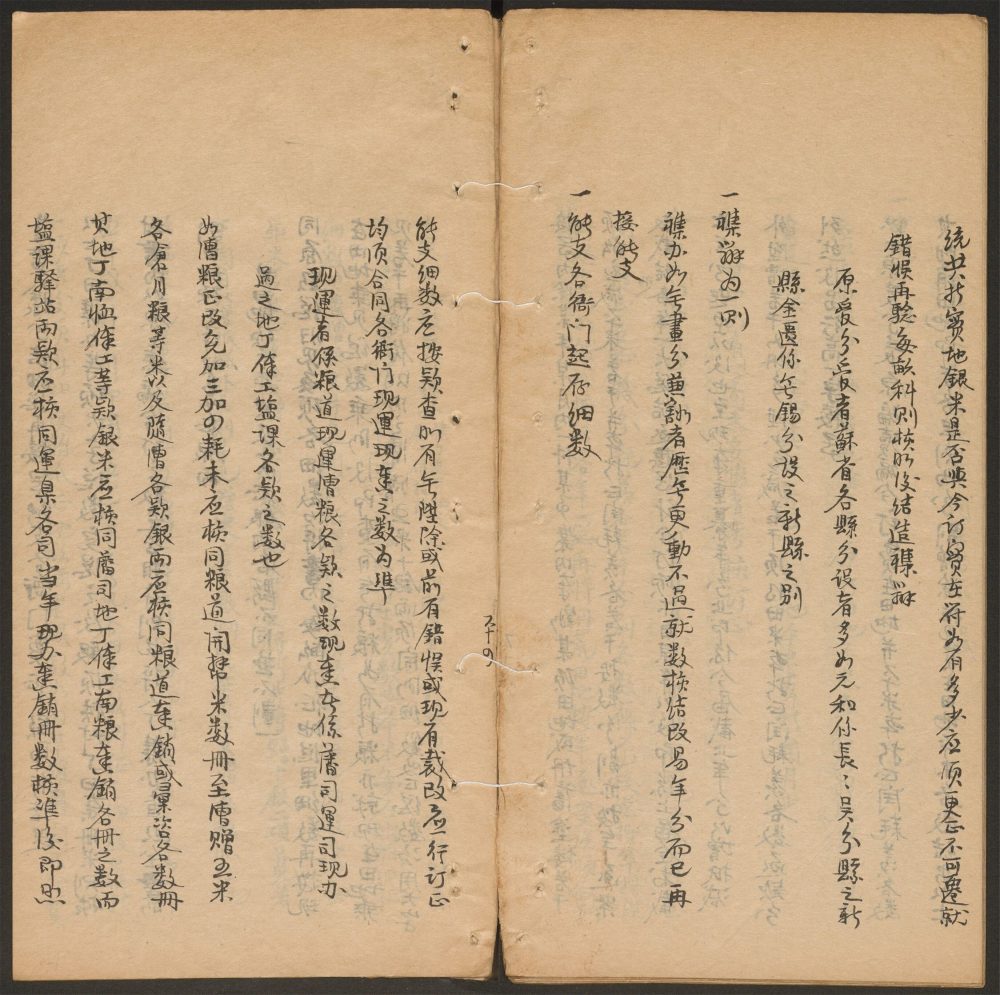 統共折實地銀米是否與今訂實在符如有多少应須更正不可遷就
錯悮再騐每畝科則核明後结造襍辦
原爰分爰者蘇省各縣分設者多如元和係長〻吳分縣之新
縣金匱係無錫分設之新縣之別
一襍辦为一则
襍办如年畫分兼者歷年更動不過就数核结改易年分而已再
接能支
一能支各衙门起存细数
能支细数应按款查明有无陞除或前有錯悮或现有裁改应一行訂正
均须合同各衙门现運现奏之数为準
现運者係粮道现運漕粮各款之数现奏者係藩司運司现办
過之地丁俸工塩课各款之数也
如漕粮正改兑加三加四耗未应核同粮道開帮米数冊至漕赠五米
各倉月粮等米以及隨漕各款銀两应核同粮道奏銷或彙咨各数冊
其地丁南恤俸工等款銀米应核同藩司地丁俸工南粮奏銷各冊之数而
塩课驛站两款应核同運臬各司当年现办奏銷冊数核準後即照